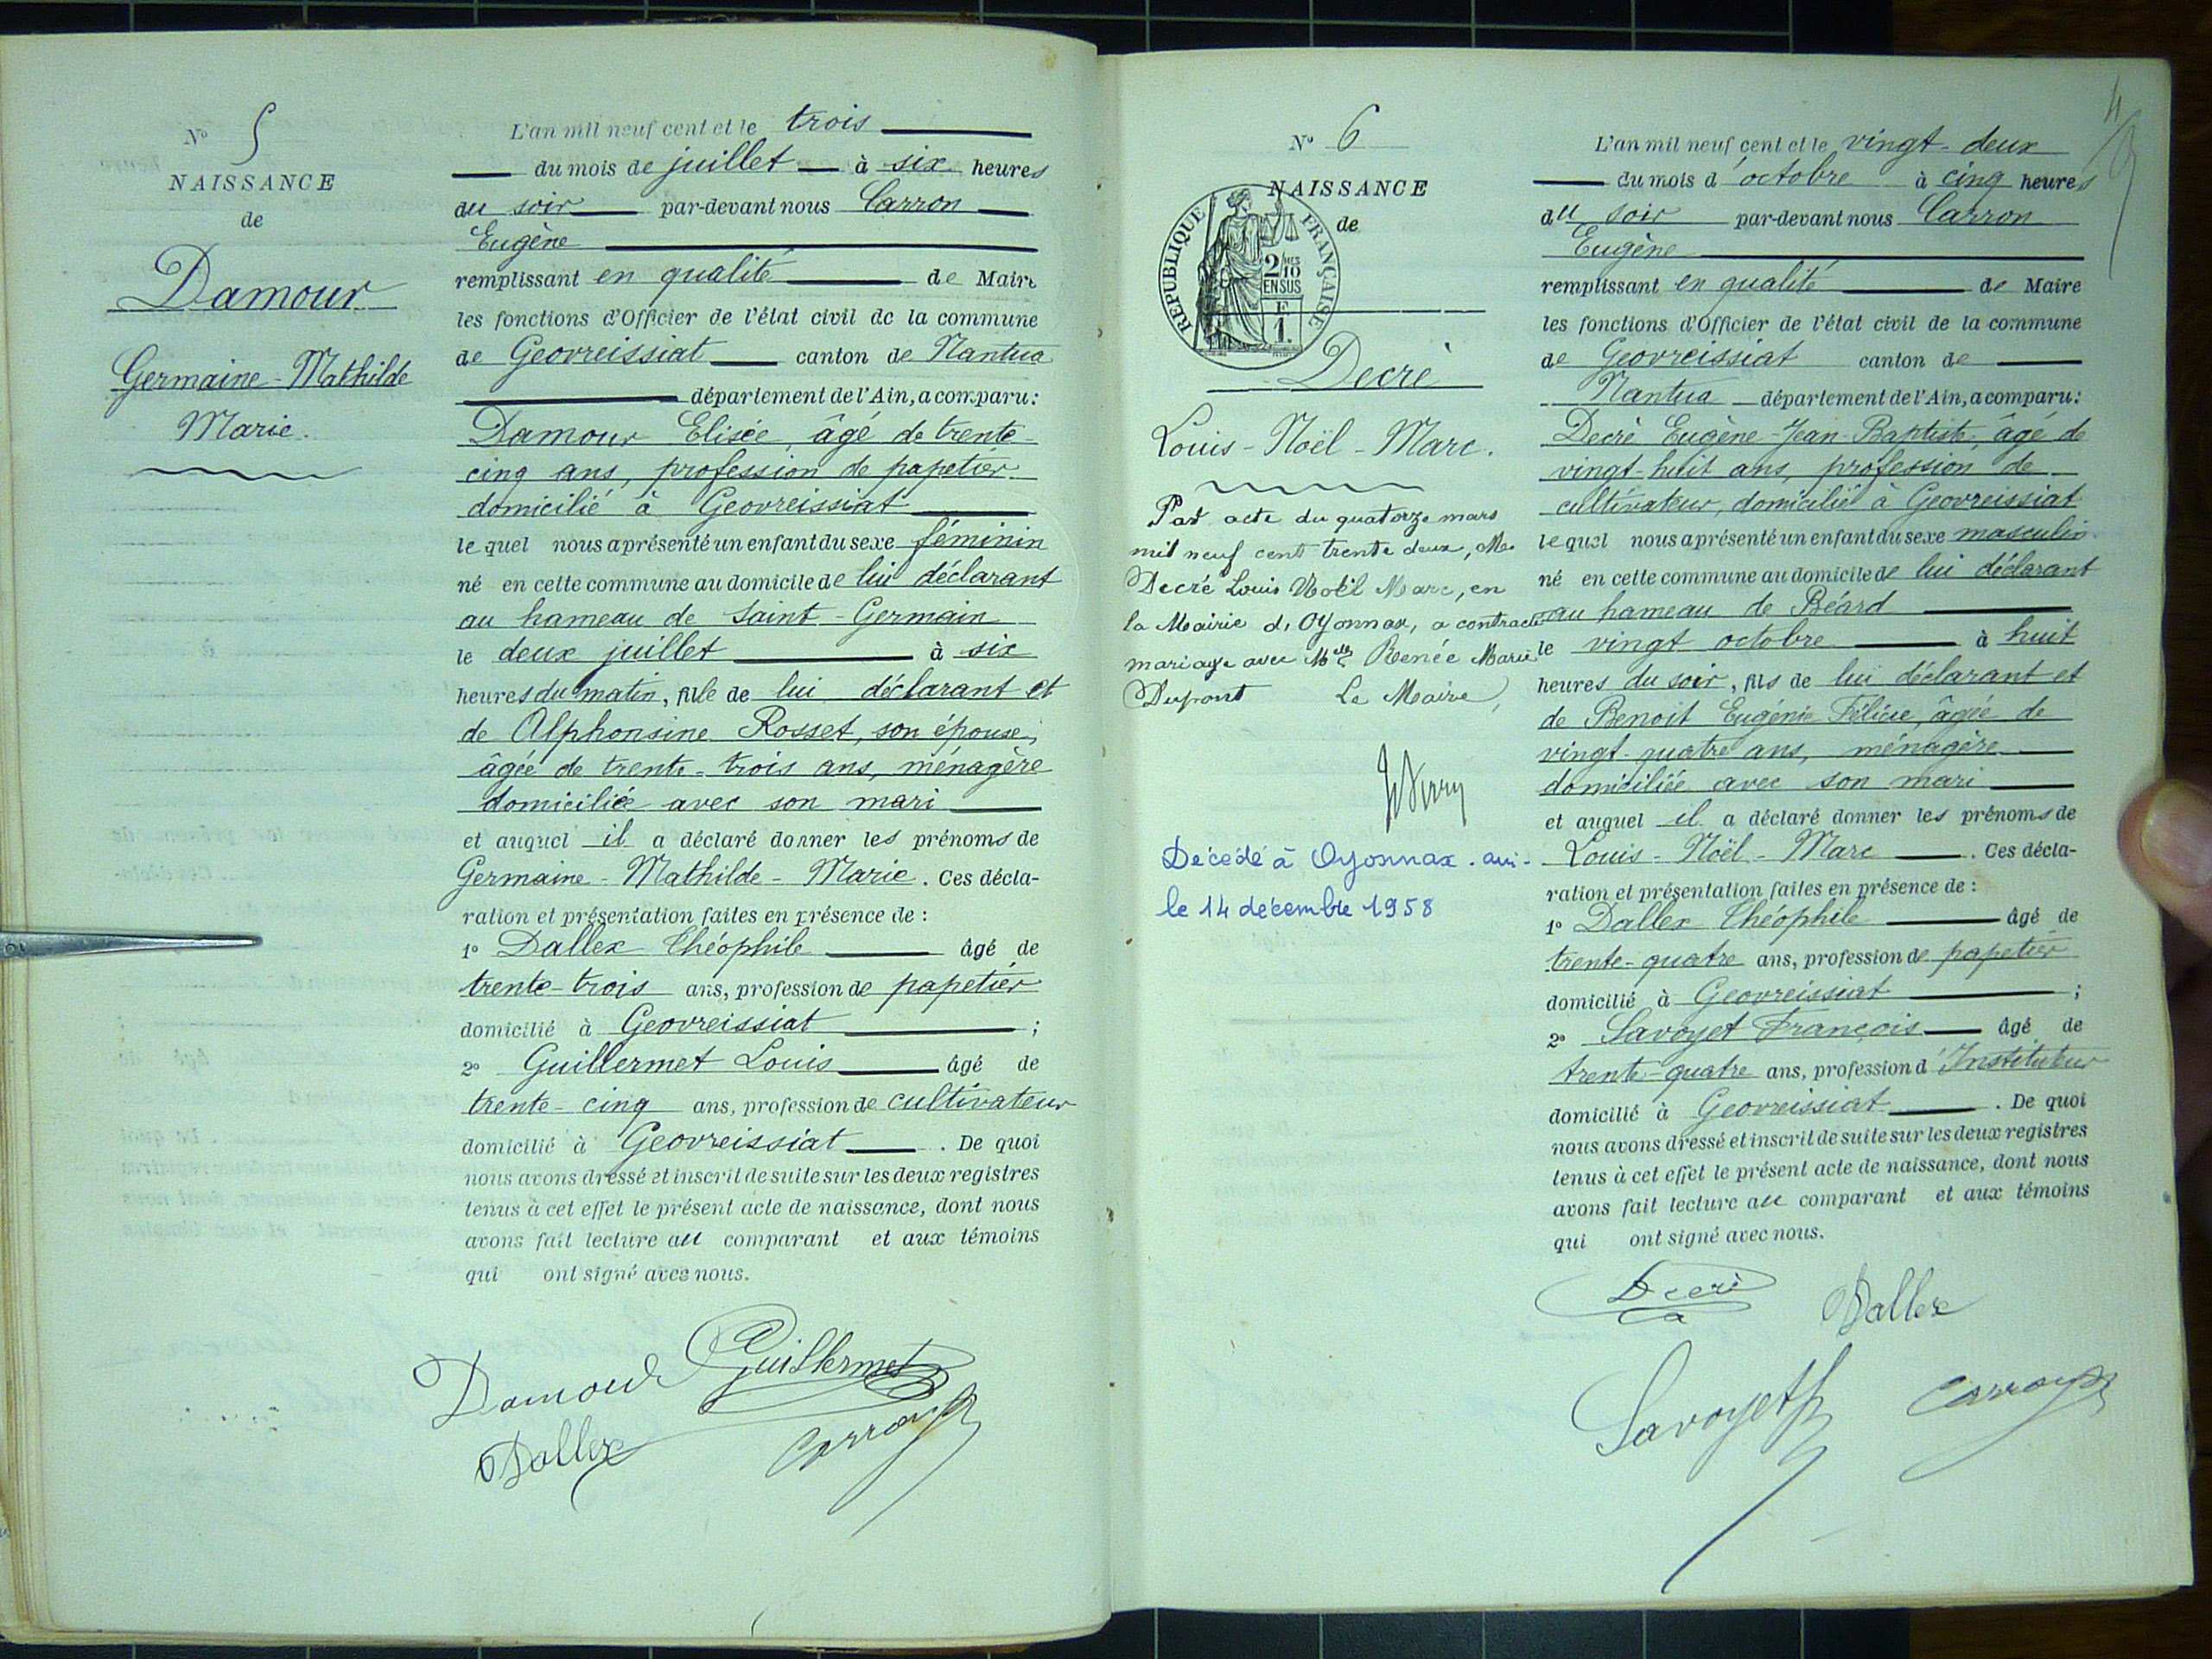 N° 5
NAISSANCE
de
Damour
Germaine-Mathilde
Marie.
L'an mil neuf cent et le trois
du mois de juillet à six heures
du soir par-devant nous Carron
Eugène
remplissant en qualité de Maire
les fonctions d'Officier de l'état civil de la commune
de Geovreissiat canton de Nantua
département de l'Ain, a comparu:
Damour Elisée, âgé de trente-
cinq ans, profession de papetier
domicilié à Geovreissiat
le quel nous a présenté un enfant du sexe féminin
né en cette commune au domicile de lui déclarant
au hameau de Saint-Germain
le deux juillet à six
heures du matin, fille de lui déclarant et
de Alphonsine Rosset, son épouse,
âgée de trente-trois ans, ménagère
domiciliée avec son mari
et auquel il a déclaré donner les prénoms de
Germaine-Mathilde-Marie. Ces décla-
ration et présentation faites en présence de :
1° Dallex Théophile âgé de
trente-trois ans, profession de papetier
domicilié à Geovreissiat ;
2° Guillermet Louis âgé de
trente-cinq ans, profession de cultivateur
domicilié à Geovreissiat. De quoi
nous avons dressé et inscrit de suite sur les deux registres
tenus à cet effet le présent acte de naissance, dont nous
avons fait lecture au comparant et aux témoins
qui ont signé avec nous.
Damour Guillermet
Dallex Carron
4
N° 6
NAISSANCE
de
REPUBLIQUE FRANÇAISE
2/10 MES
EN SUS
1 F.
Decré
Louis-Noël-Marc.
Par acte du quatorze mars
mil neuf cent trente deux, Mr
Decré Louis Noël Marc, en
la Mairie d'Oyonnax, a contracté
mariage avec Melle Renée Marie
Dupont Le Maire,
Décédé à Oyonnax. ain-
le 14 décembre 1958
L'an mil neuf cent et le vingt-deux
du mois d'octobre à cinq heures
du soir par-devant nous Carron
Eugène
remplissant en qualité de Maire
les fonctions d'Officier de l'état civil de la commune
de Geovreissiat canton de
Nantua département de l'Ain, a comparu:
Decré Eugène-Jean-Baptiste, âgé de
vingt-huit ans, profession de
cultivateur, domicilié à Geovreissiat
le quel nous a présenté un enfant du sexe masculin
né en cette commune au domicile de lui déclarant
au hameau de Béard
le vingt octobre à huit
heures du soir, fils de lui déclarant et
de Benoit Eugénie Félicie, âgée de
vingt-quatre ans, ménagère
domiciliée avec son mari
et auquel il a déclaré donner les prénoms de
Louis-Noël-Marc. Ces décla-
ration et présentation faites en présence de :
1° Dallex Théophile âgé de
trente-quatre ans, profession de papetier
domicilié à Geovreissiat ;
2° Savoyet François âgé de
trente-quatre ans, profession d'Instituteur
domicilié à Geovreissiat. De quoi
nous avons dressé et inscrit de suite sur les deux registres
tenus à cet effet le présent acte de naissance, dont nous
avons fait lecture au comparant et aux témoins
qui ont signé avec nous.
Decré Dallex
Savoyet Carron